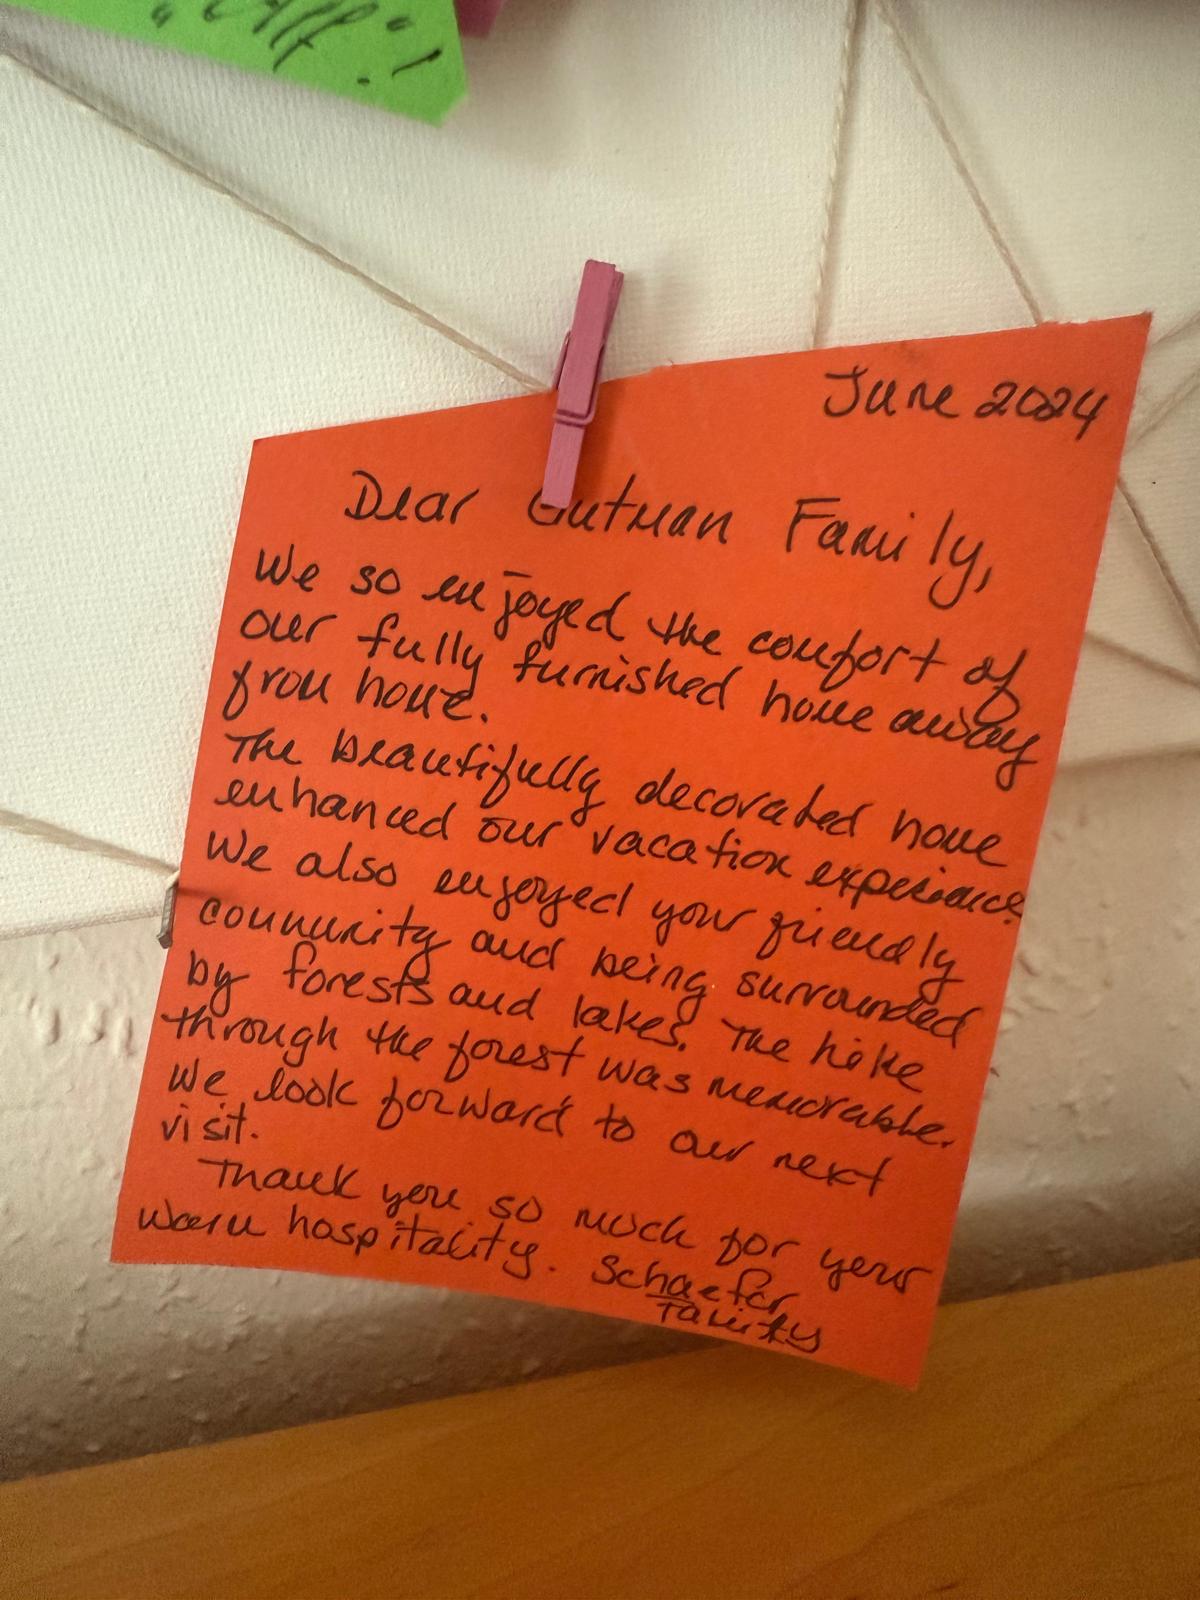 "Alf"!
June 2024
Dear Gutman Family,
We so enjoyed the comfort of
our fully furnished home away
from home.
The beautifully decorated home
enhanced our vacation experience.
We also enjoyed your friendly
community and being surrounded
by forests and lakes. The hike
through the forest was memorable.
We look forward to our next
visit.
Thank you so much for your
warm hospitality. Schaefer
Family